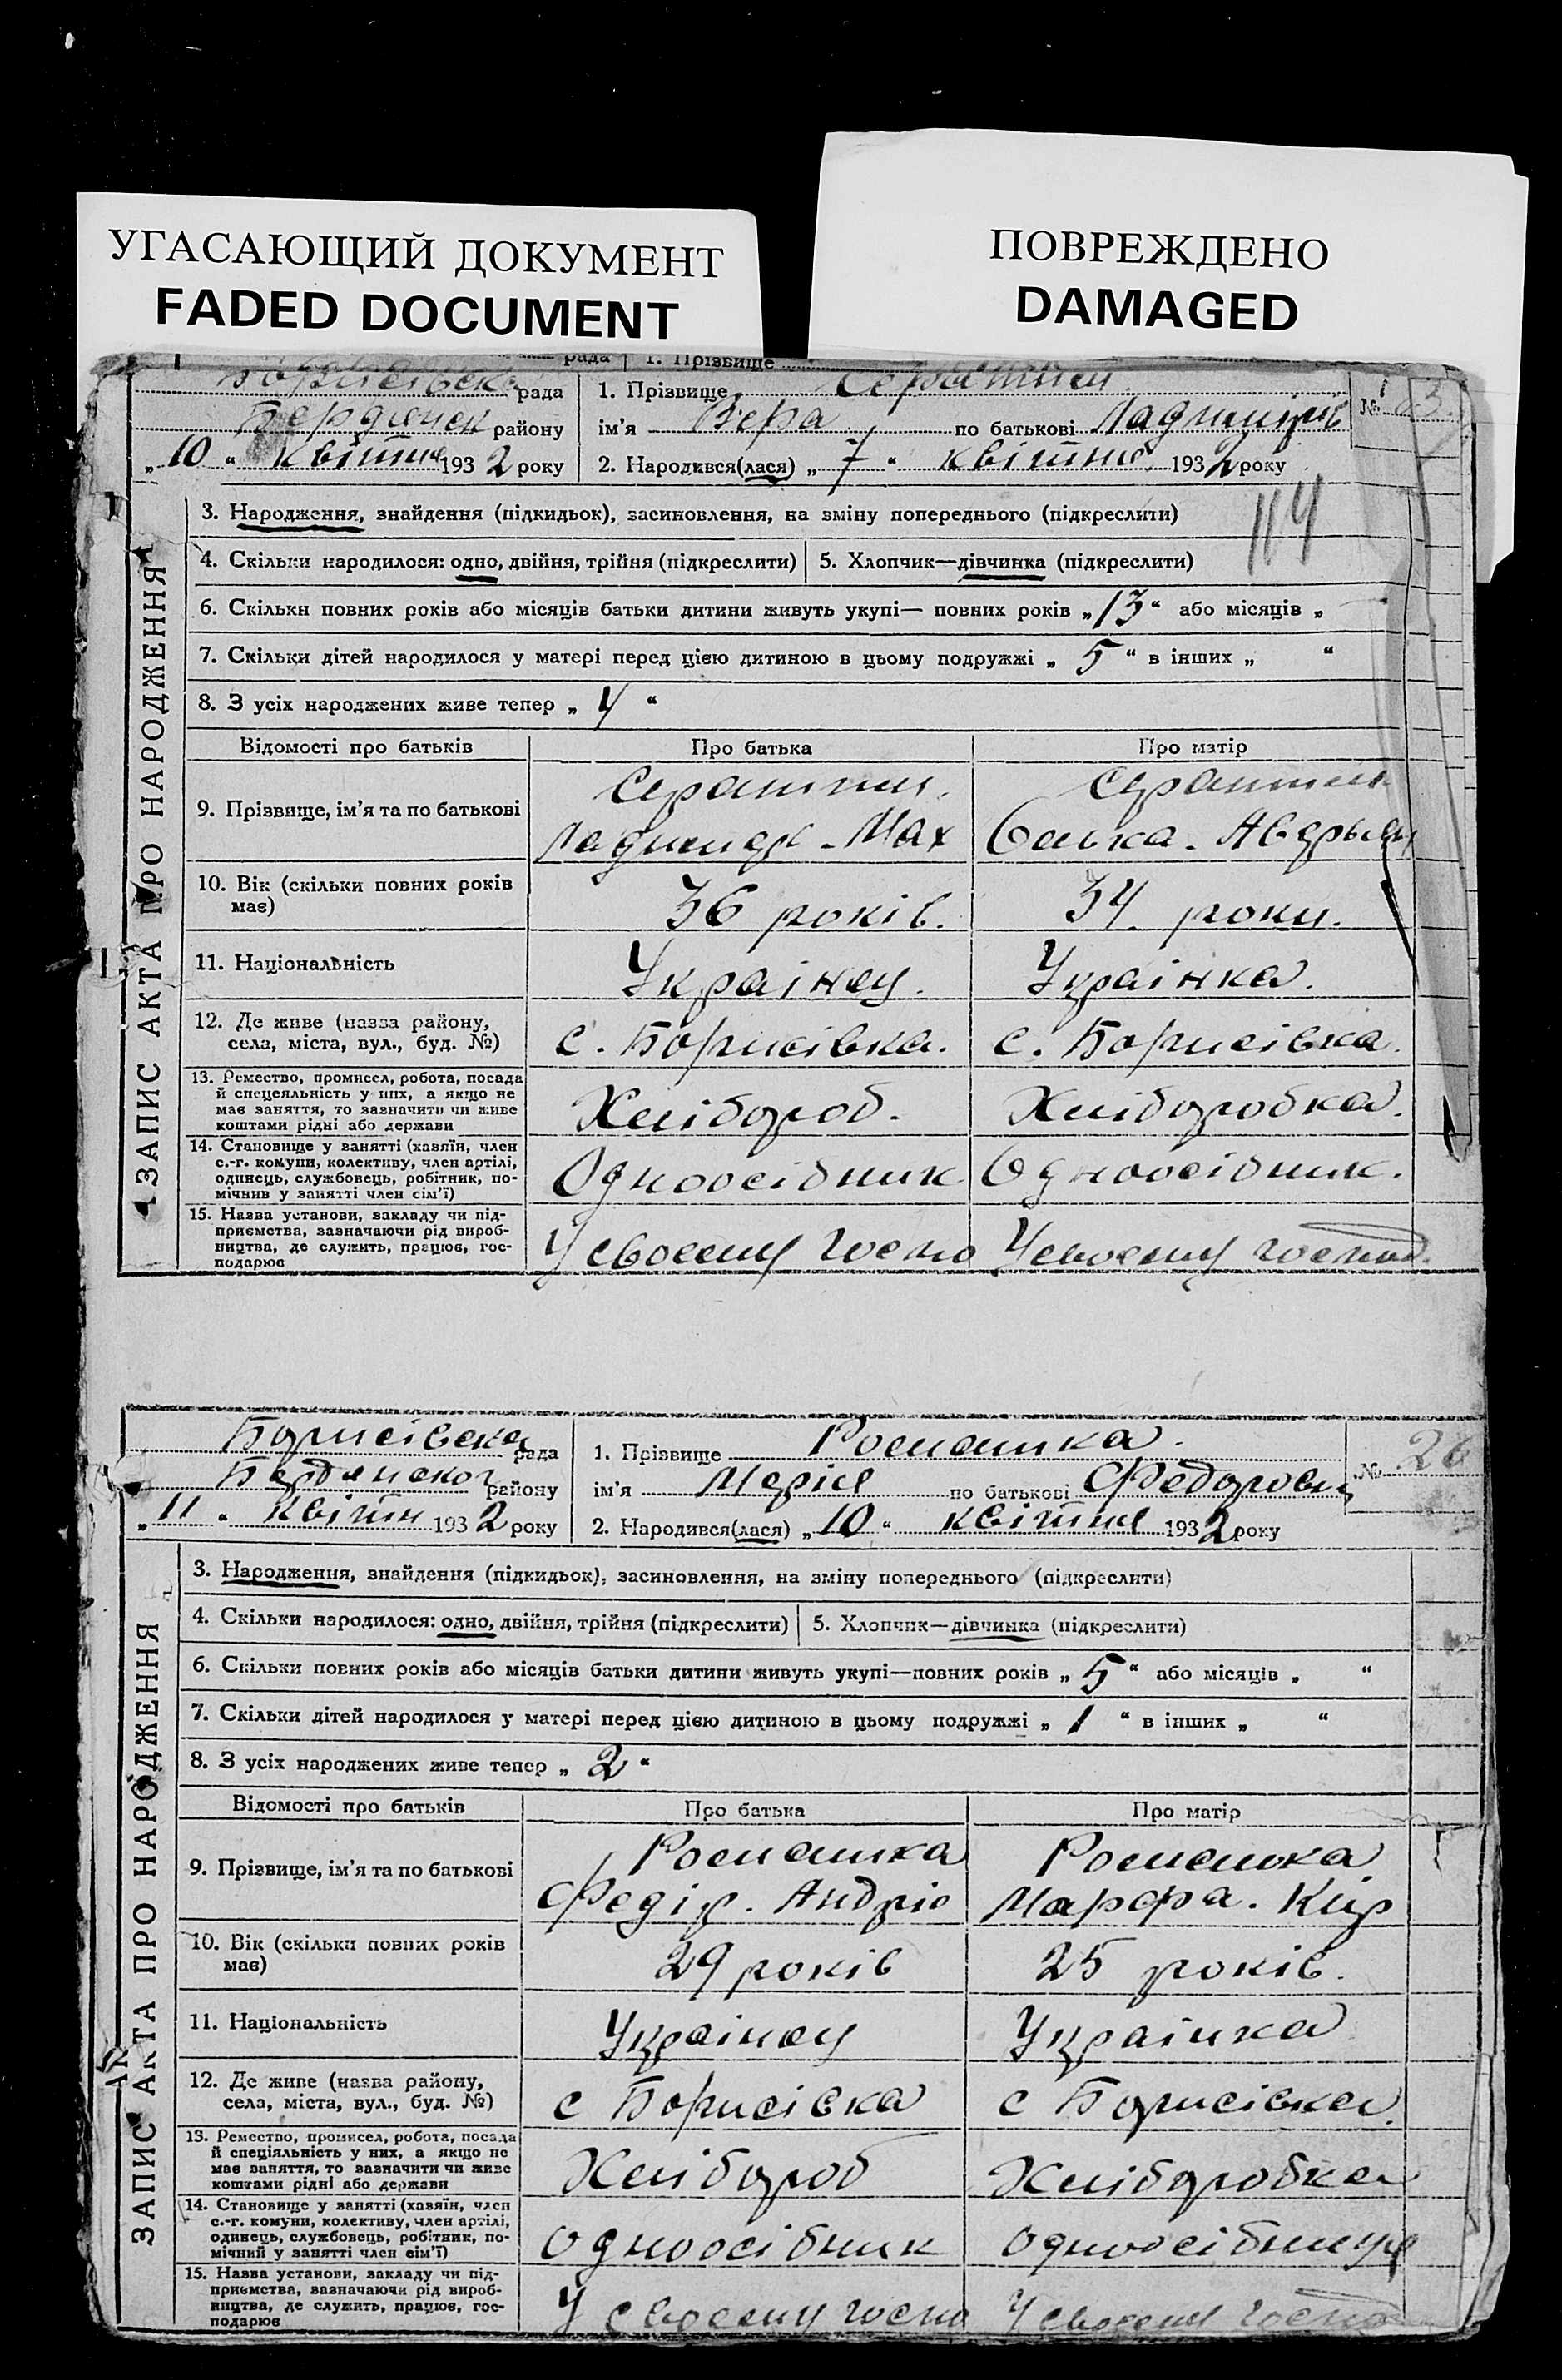 УГАСАЮЩИЙ ДОКУМЕНТ
FADED DOCUMENT
ПОВРЕЖДЕНО
DAMAGED
рада 1. Прізвище
Борисівска рада 1. Прізвище
Бердянск району ім'я Вера по батькові №
„ 10 “ квітня 1932 року 2. Народився(лася) „ 7 “ квітня 1932 року
114
ЗАПИС АКТА ПРО НАРОДЖЕННЯ
3. Народження, знайдення (підкидьок), засиновлення, на зміну попереднього (підкреслити)
4. Скільки народилося: одно, двійня, трійня (підкреслити) 5. Хлопчик—дівчинка (підкреслити)
6. Скільки повних років або місяців батьки дитини живуть укупі— повних років „ 13 “ або місяців „
7. Скільки дітей народилося у матері перед цією дитиною в цьому подружжі „ 5 “ в інших „ “
8. З усіх народжених живе тепер „ 4 “
Відомості про батьків Про батька Про матір
9. Прізвище, ім'я та по батькові
10. Вік (скільки повних років має) 36 років. 34 роки.
11. Національність Українец. Українка.
12. Де живе (назва району, села, міста, вул., буд. №) с. Борисівка. с. Борисівка.
13. Ремество, промисел, робота, посада
й спецеяльність у них, а якщо не
має заняття, то зазначити чи живе
коштами рідні або держави
Хлібороб. Хліборобка.
14. Становище у занятті (хазяїн, член
с.-г. комуни, колективу, член артілі,
одинець, службовець, робітник, по-
мічнив у занятті член сім'ї)
Одноосібник Одноосібник.
15. Назва установи, закладу чи під-
приємства, зазначаючи рід вироб-
ництва, де служить, працює, гос-
подарює
У своему госпо У своему господ.
Борисівска рада 1. Прізвище Романика № 26
Бердянског району ім'я Марія по батькові Федоровн
„ 11 “ квітн 1932 року 2. Народився(лася) „ 10 “ квітня 1932 року
ЗАПИС АКТА ПРО НАРОДЖЕННЯ
3. Народження, знайдення (підкидьок), засиновлення, на зміну попереднього (підкреслити)
4. Скільки народилося: одно, двійня, трійня (підкреслити) 5. Хлопчик—дівчинка (підкреслити)
6. Скільки повних років або місяців батьки дитини живуть укупі—повних років „ 5 “ або місяців „ “
7. Скільки дітей народилося у матері перед цією дитиною в цьому подружжі „ 1 “ в інших „ “
8. З усіх народжених живе тепер „ 2 “
Відомості про батьків Про батька Про матір
9. Прізвище, ім'я та по батькові
Федір. Андріє Марфа. Кир
10. Вік (скільки повних років має) 29 років 25 років.
11. Національність Українец Українка
12. Де живе (назва району, села, міста, вул., буд. №) с Борисівка с Борисівка.
13. Ремество, промисел, робота, посада
й спеціяльність у них, а якщо не
має заняття, то зазначити чи живе
коштами рідні або держави
Хлібороб Хліборобка
14. Становище у занятті (хазяїн, член
с.-г. комуни, колективу, член артілі,
одинець, службовець, робітник, по-
мічний у занятті член сім'ї)
одноосібник одноосібниця
15. Назва установи, закладу чи під-
приємства, зазначаючи рід вироб-
ництва, де служить, працює, гос-
подарює
У своему госпо У своему господ